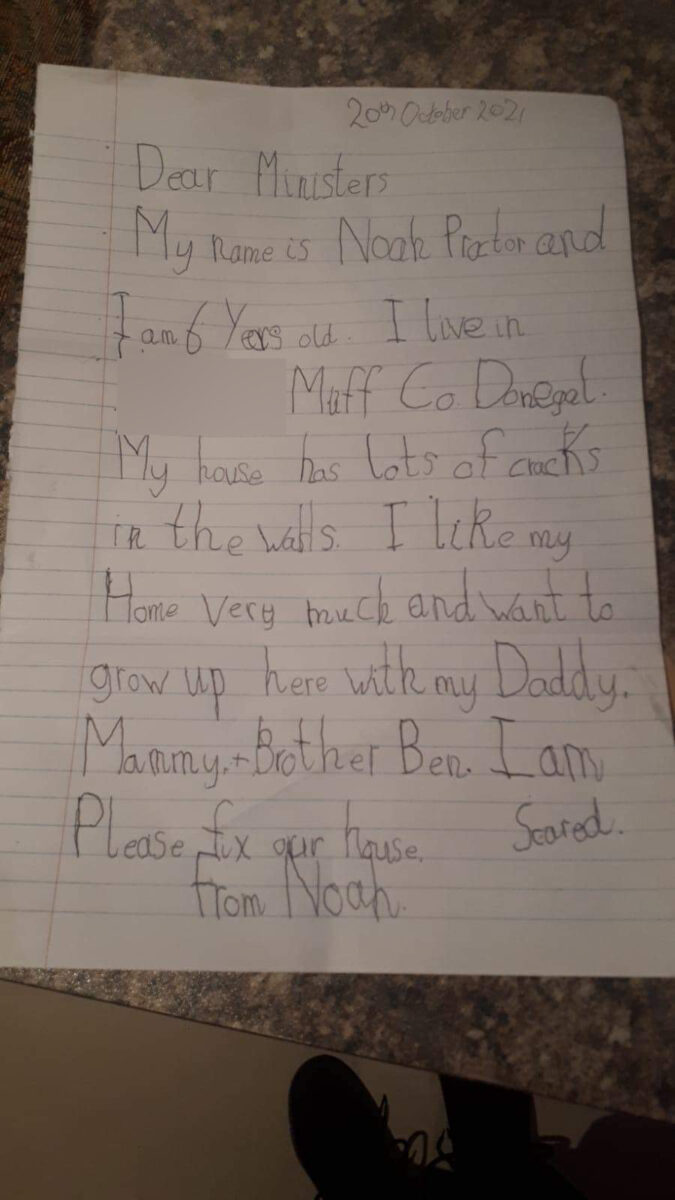 20th October 2021
Dear Ministers
My name is Noah Proctor and
I am 6 Yers old. I live in
Muff Co. Donegal.
My house has lots of cracks
in the walls. I like my
Home very much and want to
grow up here with my Daddy.
Mammy.+Brother Ben. I am
Scared.
Please fix our house.
From Noah.